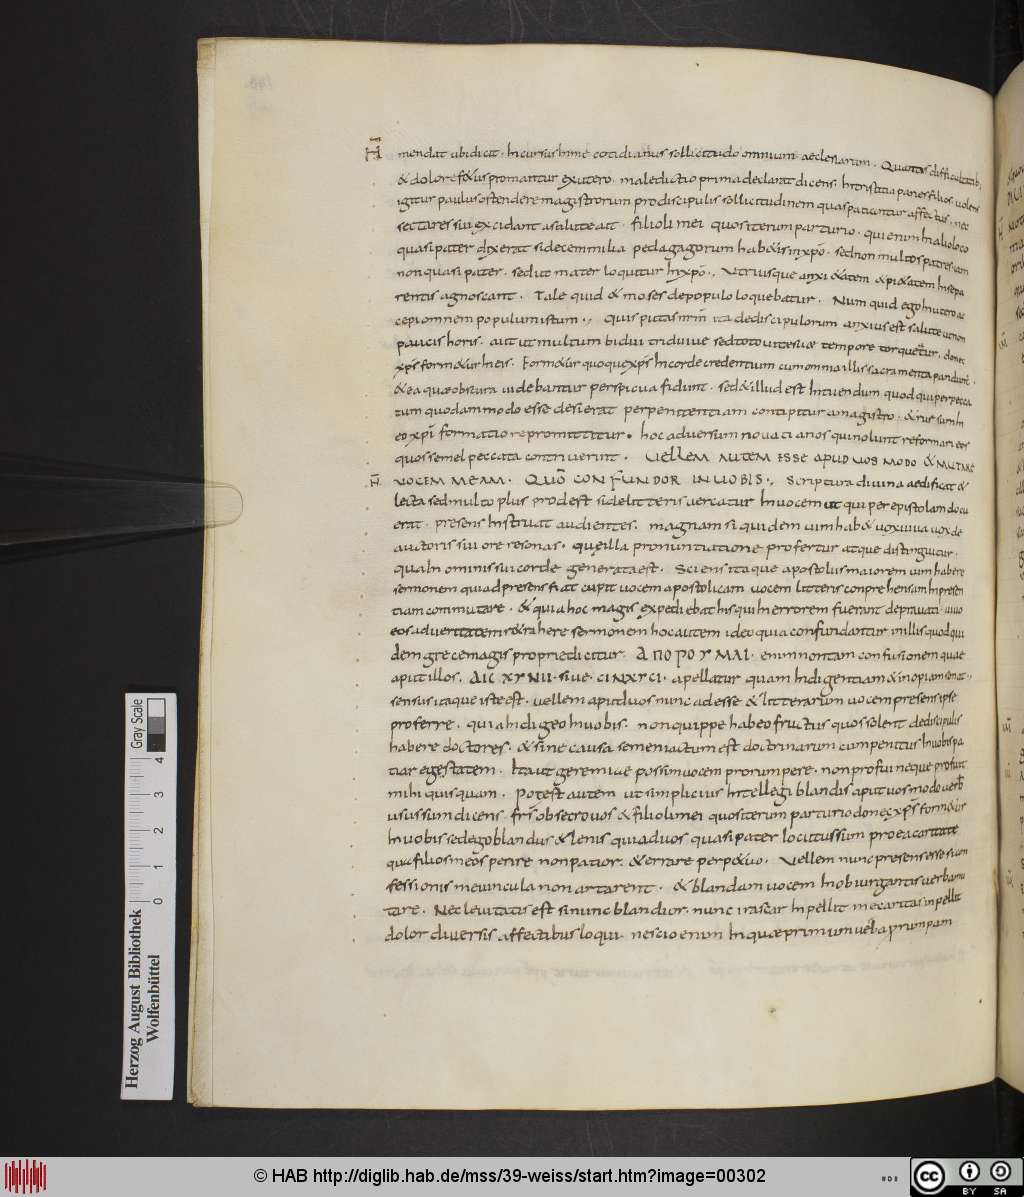 mendat ubi dicit · Incursus in me cotidianus sollicitudo omnium aeclesiarum · Quantis difficultatib;
& dolore f&us promantur ex utero · maledictio prima declarat dicens · In tristitia paries filios · uolens
igitur paulus ostendere magistrorum pro discipulis sollicitudinem quas patiantur affectus · nec
sectares sui excidant a salute ait · filioli mei quos iterum parturio · qui enim in alio loco
quasi pater dixerat si decem milia pedagagorum hab&is in xpo · sed non multos patres iam
non quasi pater · sed ut mater loquitur in xpo · Utriusque anxi&atem & pi&atem in se pa
rentis agnoscant · Tale quid & moses de populo loquebatur · Num quid ego in utero ac
cepi omnem populum istum · Quis putas nrm ita de discipulorum anxius est salute ut non
paucis horis · aut ut multum bidui triduiue sed toto uitesuæ tempore torqueatur · donec
xps form&ur in eis · Form&ur quoque xps in corde credentium cum omnia illis sacramenta pandunt ·
& ea quæ obscura uidebantur perspicua fiunt · sed & illud est intuendum quod qui per pecca
tum quodammodo esse desierat per penitentiam concipitur a magistro · & rursum in
eo xpi formatio repromittitur · hoc aduersum nouacianos qui nolunt reformari eos
quos semel peccata contriuerint · UELLEM AUTEM ESSE APUD UOS MODO & MUTARE
UOCEM MEAM · QUO CONFUNDOR IN UOBIS · Scriptura diuina aedificat &
lecta sed multo plus prodest si de litteris uercatur in uocem ut qui per epistolam docu
erat · presens instruat audientes · magnam siquidem uim hab& uox uiua uox de
auctoris sui ore resonas · que illa pronuntiatione profertur atque distinguitur ·
qua in ominis sui corde generata est · Sciens itaque apostolus maiorem uim habere
sermonem qui ad presens fiat cupit uocem apostolicam uocem litteris conprehensam in presen
tiam commutare · & quia hoc magis expediebat his qui in errorem fuerant deprauati · uiuo
eos ad ueritatem r&rahere sermonem hoc autem ideo quia confundantur in illis quod qui
dem grece magis proprie dicitur · ΑΠΟΡΟΥΜΑΙ · enim non tam confusionem quae
aput illos · ΑΙϹΧΥΝΗ · siue · CINXYCI · apellatur quam indigentiam & inopiam sonat ·
sensus itaque iste est · uellem aput uos nunc adesse & litterarum uocem presens ipse
proferre · quia indigeo in uobis · non quippe habeo fructus quos solent de discipulis
habere doctores · & sine causa semen iactum est doctrinarum cum penitus in uobis pa
tiar egestatem · Ita ut geremiae possim uocem prorumpere · non profui neque profuit
mihi quisquam · Potest autem ut simplicius intellegi blandis aput uos modo uerb
usus sum dicens · frs obsecro uos & filioli mei quos iterum parturio donec xps form&ur
In uobis sed ego blandus & lenis quia duos quasi pater locutus sum pro ea caritate
qua filios meos perire non patior · & errare perp&uo · Uellem nunc presens esse si con
fessionis me uincula non artarent · & blandam uocem in obiurgantis uerba mu
tare · Nec leuitatis est si nunc blandior · nunc irascar Inpellit me caritas inpellit
dolor diuersis affectibus loqui · nescio enim In quæ primum uerba prumpam
Herzog August Bibliothek
Wolfenbüttel
Gray Scale
0 1 2 3 4
© HAB http://diglib.hab.de/mss/39-weiss/start.htm?image=00302
cc BY SA